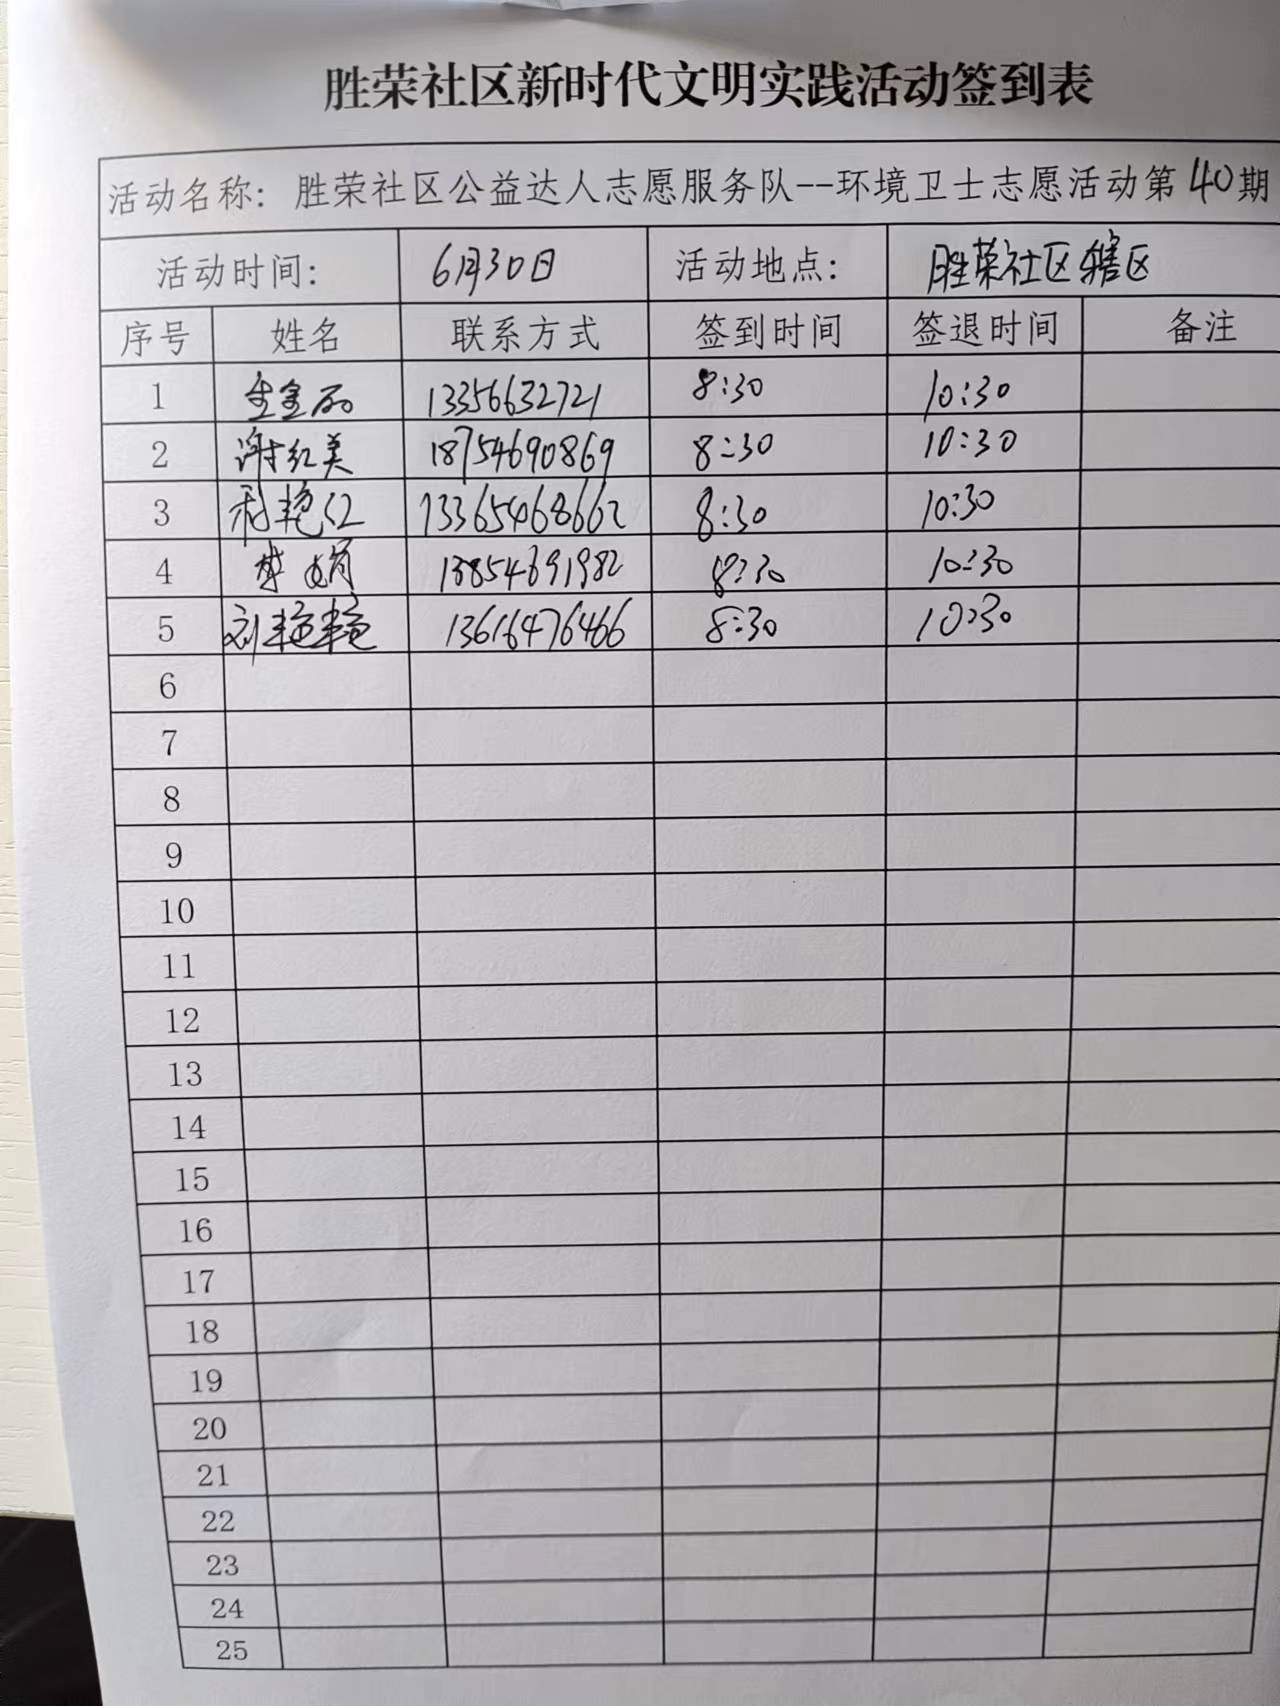 胜荣社区新时代文明实践活动签到表
活动名称: 胜荣社区公益达人志愿服务队--环境卫士志愿活动第40期
活动时间: 6月30日 活动地点: 胜荣社区辖区
序号 姓名 联系方式 签到时间 签退时间 备注
1 13356632721 8:30 10:30
2 谢红美 18754690869 8:30 10:30
3 13365468662 8:30 10:30
4 13854691982 8:30 10:30
5 刘艳艳 13616476466 8:30 10:30
6
7
8
9
10
11
12
13
14
15
16
17
18
19
20
21
22
23
24
25